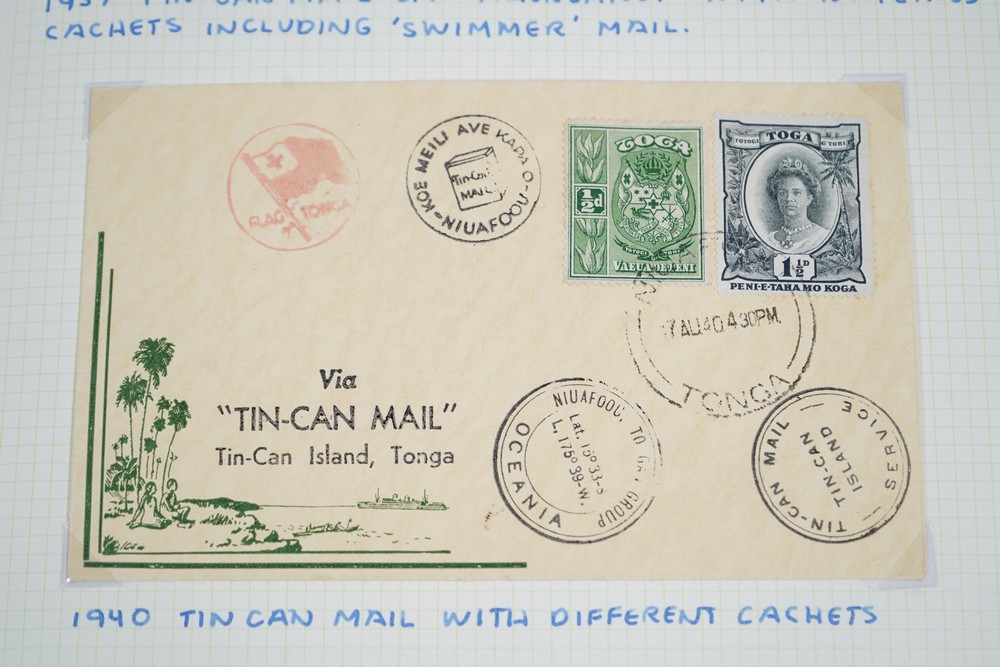 CACHETS INCLUDING 'SWIMMER' MAIL.
FLAG TONGA
KOE MEILI AVE KAPA O
NIUAFOOU-O
Tin-Can
MAIL
TOGA
½d
TOTOGI
VAEUA DE PENI
TOGA
TOTOGI
1½D
PENI-E-TAHA MO KOGA
17 AU 40 4 30PM.
TONGA
Via
"TIN-CAN MAIL"
Tin-Can Island, Tonga
NIUAFOOU, GROUP
OCEANIA
Lat. 15º33-S
L. 175º39-W.
TIN-CAN MAIL — SERVICE —
TIN-CAN
ISLAND
1940 TIN CAN MAIL WITH DIFFERENT CACHETS